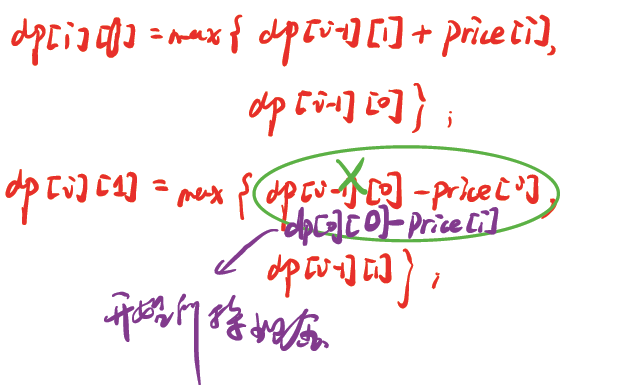 dp[i][0] = max{ dp[i-1][1] + price[i],
dp[i-1][0] };
dp[i][1] = max { dp[i-1][0] - price[i],
dp[0][0] - price[i]
dp[i-1][1] };
开始的